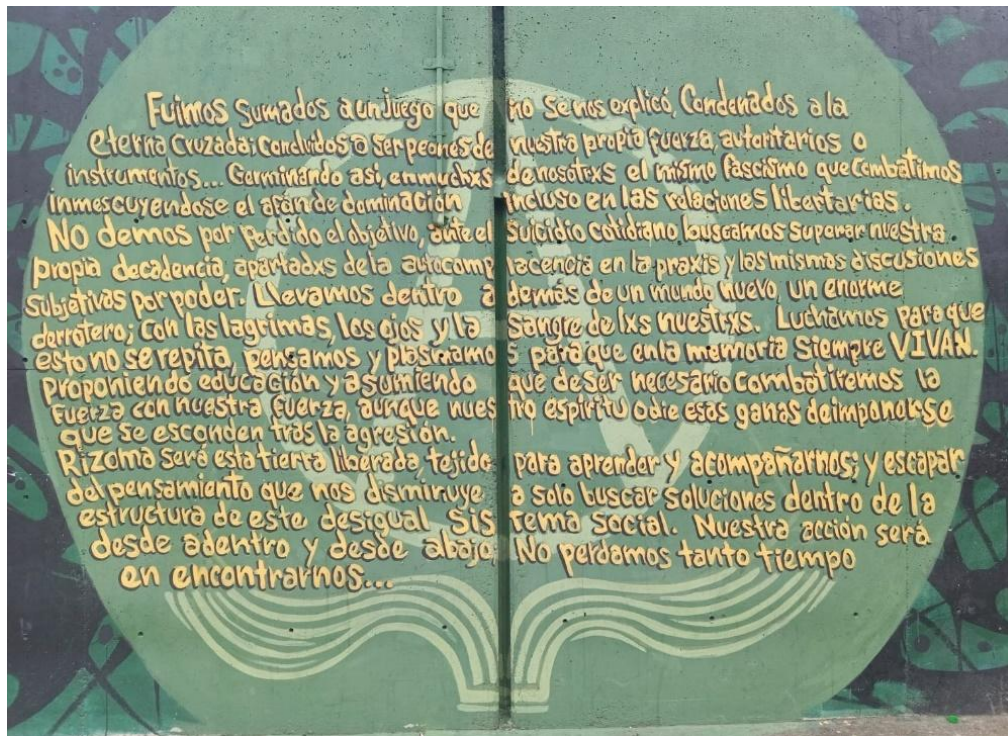 Fuimos sumados a un juego que no se nos explicó, Condenados a la
eterna cruzada; concluidos a ser peones de nuestra propia fuerza, autoritarios o
instrumentos... Germinando asi, en muchxs de nosotrxs el mismo fascismo que combatimos
inmescuyendose el afán de dominación incluso en las relaciones libertarias.
No demos por perdido el objetivo, ante el suicidio cotidiano buscamos superar nuestra
propia decadencia, apartadxs de la autocomplacencia en la praxis y las mismas discusiones
subjetivas por poder. Llevamos dentro además de un mundo nuevo, un enorme
derrotero; con las lagrimas, los ojos y la sangre de lxs nuestrxs. Luchamos para que
esto no se repita, pensamos y plasmamos para que en la memoria siempre VIVAN.
Proponiendo educación y asumiendo que de ser necesario combatiremos la
fuerza con nuestra fuerza, aunque nuestro espiritu odie esas ganas de imponerse
que se esconden tras la agresión.
Rizoma será esta tierra liberada, tejido para aprender y acompañarnos; y escapar
del pensamiento que nos disminuye a solo buscar soluciones dentro de la
estructura de este desigual sistema social. Nuestra acción será
desde adentro y desde abajo, No perdamos tanto tiempo
en encontrarnos...